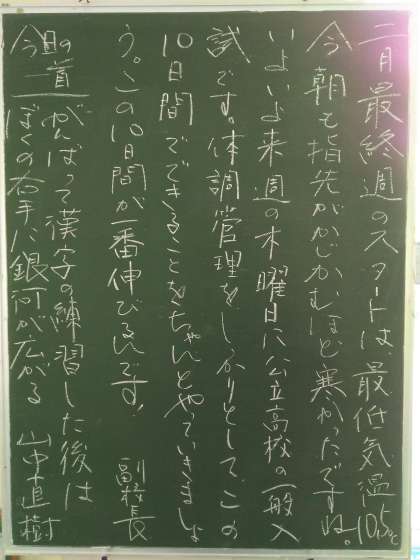 二月最終週のスタートは、最低気温10.5℃
今朝も指先がかじかむほど寒かったですね。
いよいよ来週の木曜日に公立高校の一般入
試です。体調管理をしっかりとして、この
10日間でできることをちゃんとやっていきましょ
う。この10日間が一番伸びるんです！
副校長
今週の一首
がんばって漢字の練習した後は
ぼくの右手に銀河が広がる 山中直樹